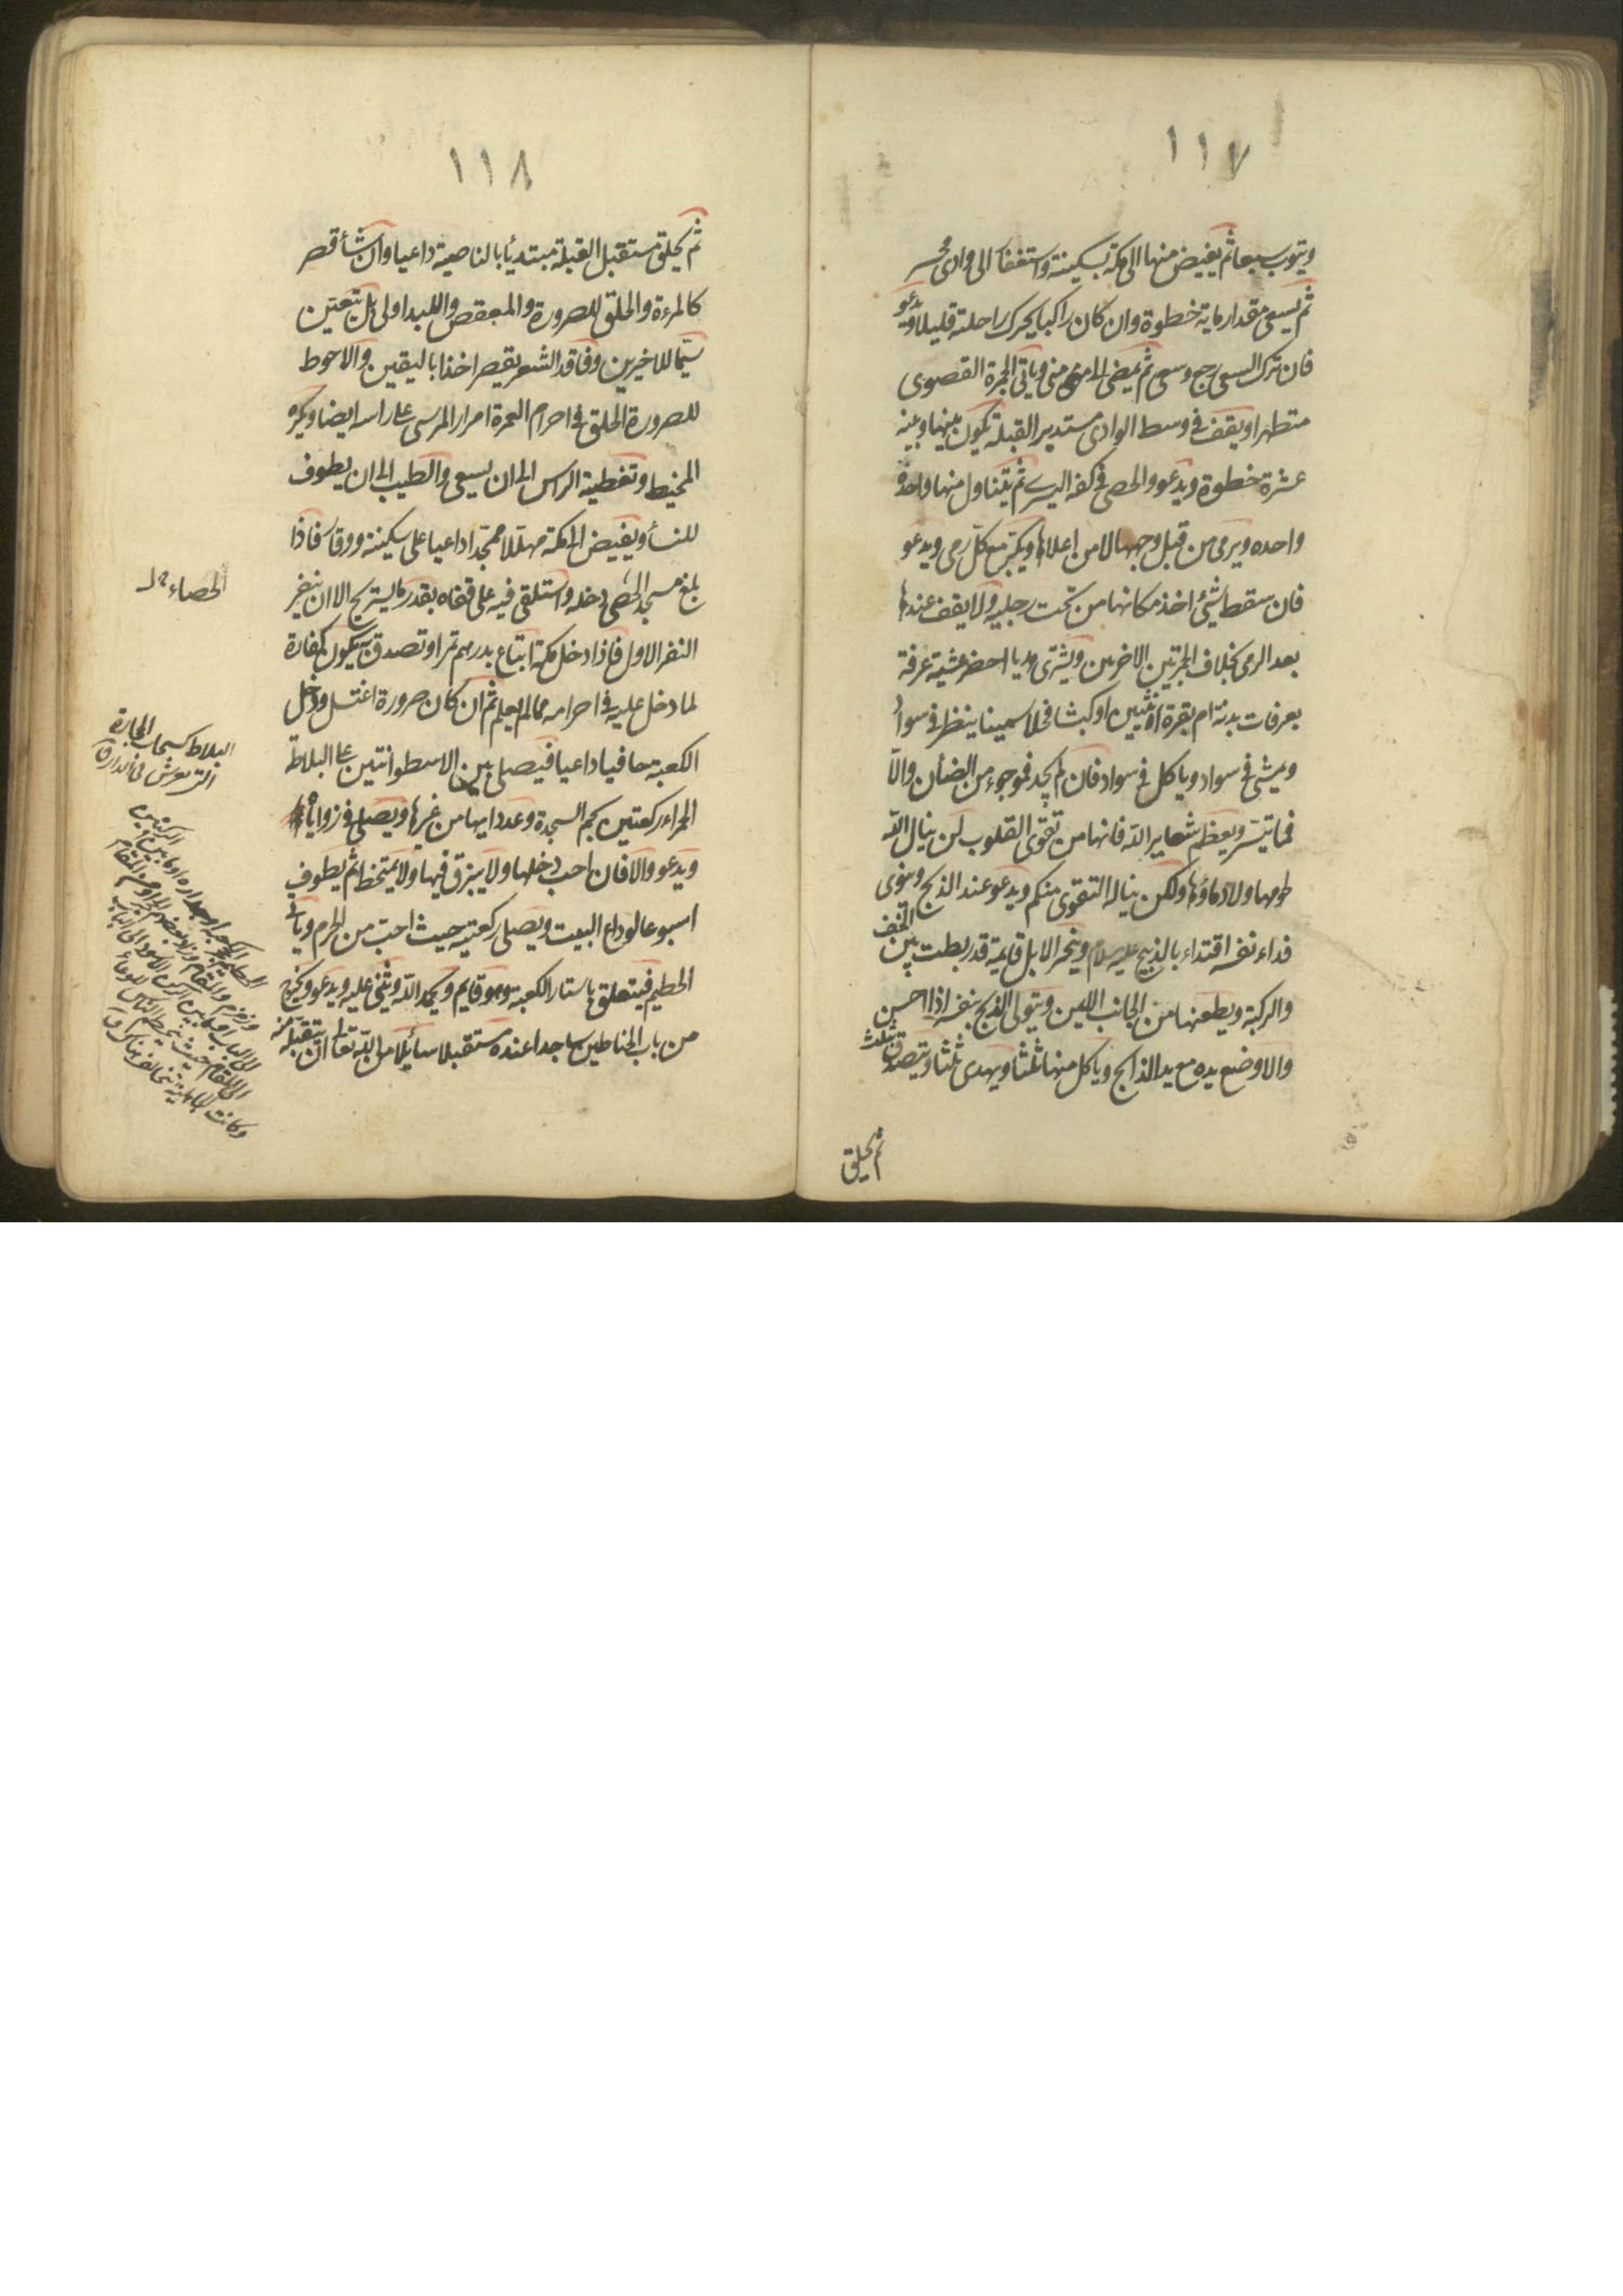 ١١٧
ويتوب سبعا ثم يفيض منها الى مكة بسكينة واستغفا الى وادى محسر
ثم يسعى مقدار ماية خطوة وان كان راكبا يحرك راحلته قليلا ويدعو
فان ترك السعى رجع وسعى ثم يمضى الى منى وياتى الجمرة القصوى
متطهرا ويقف فى وسط الوادى مستدبر القبلة يكون بينها وبينه
عشرة خطوة ويدعو والحصى فى كفه اليسرى ثم يتناول منها واحدة
واحده ويرمى من قبل وجهها لا من اعلاها ويكبر مع كل رمى ويدعو
فان سقط شئ اخذ مكانها من تحت رجليه ولا يقف عندها
بعد الرمى بخلاف الجمرتين الاخريين ويشترى هديا احضر عشية عرفة
بعرفات بدنة ام بقرة انثيين او كبشا فحلا سمينا ينظر فى سواد
ويمشى فى سواد وياكل فى سواد فان لم يجد فموجوء من الضأن والّا
فما تيسّر ويعظم شعاير الله فانها من تقوى القلوب لن ينال الله
لحومها ولا دماؤها ولكن يناله التقوى منكم ويدعو عند الذبح وينوى
فداء نفسه اقتداء بالذبيح عليه السلام وينحر الابل قايمة قد ربطت بين الخف
والركبة ويطعنها من الجانب الايمن ويتولى الذبح بنفسه اذا احسن
والا وضع يده مع يد الذابح وياكل منها ثلثا ويهدى ثلثا ويتصدق بثلث
ثم يحلق
١١٨
ثم يحلق مستقبل القبلة مبتديًا بالناصية داعيا وان شاء قصر
كالمرءة والحلق للصرورة والمعقص والملبد اولى بل يتعين
سيّما للاخيرين وفاقد الشعر يقصر اخذا باليقين والاحوط
للصرورة الحلق فى احرام العمرة امرار الموسى على راسه ايضا ويكره
المخيط وتغطية الراس الى ان يسعى والطيب الى ان يطوف
للنساء ويفيض الى مكة مهللا ممجدا داعيا على سكينة ووقار فاذا
بلغ مسجد الحصى دخله واستلقى فيه على قفاه بقدر ما يستريح الا ان ينفر
النفر الاول فاذا دخل مكة ابتاع بدرهم تمرا وتصدق به يكون كفارة
لما دخل عليه فى احرامه مما لم يعلم ثم ان كان صرورة اغتسل ودخل
الكعبة حافيا داعيا فيصلى بين الاسطوانتين على البلاطة
الحمراء ركعتين بحم السجدة وعدد ايها من غيرها ويصلى فى زواياها
ويدعو والا فان احب دخلها ولا يبزق فيها ولا يمتخط ثم يطوف
اسبوعا لوداع البيت ويصلى ركعتيه حيث احبّ من الحرم وياتى
الحطيم فيتعلق باستار الكعبة وهو قايم ويحمد الله ويثنى عليه ويدعو ويخرج
من باب الحناطين ساجدا عنده مستقبلا سائلا من الله تعالى ان يتقبله منه
الحصباء
البلاط كسحاب الحجارة
التى تفرش فى الدار ق